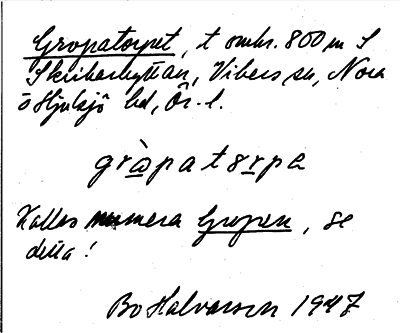 Gropatorpet, t omkr. 800 m S
Skrikarhyttan, Vikers sn, Nora
o Hjulsjö bd, Ör. l.
grò̲patər̲pə
Kallas numera Gropen, se
detta!
Bo Halvarson 1947